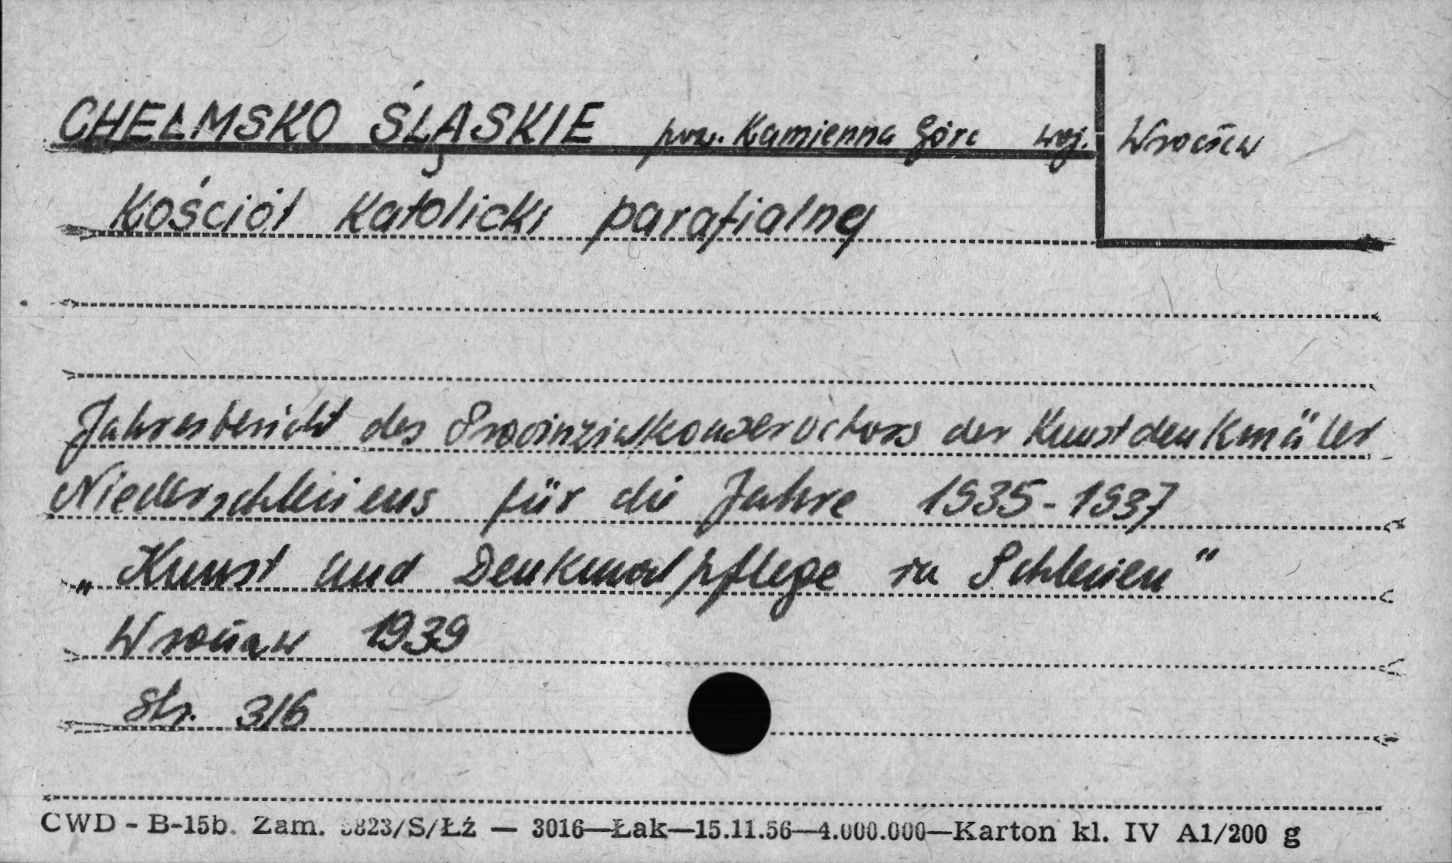 CHEŁMSKO ŚLĄSKIE pow. Kamienna Góra woj. Wrocław
Kościół Katolicki parafialny
Jahresbericht des Provinzialkonservators der Kunstdenkmäler
Niederschlesiens für die Jahre 1935-1937
„Kunst und Denkmalpflege in Schlesien"
Wrocław 1939
str. 316
CWD - B-15b. Zam. 3823/S/Łź — 3016—Łak—15.11.56—4.000.000—Karton kl. IV A1/200 g